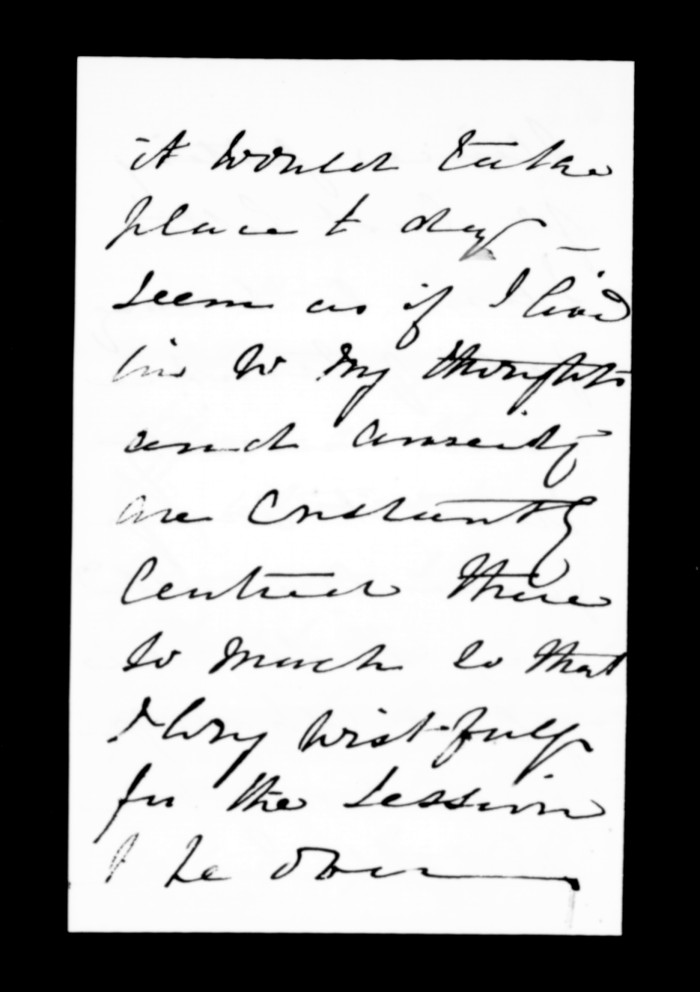 it would take
place to day _
seem as if I lived
in W my thoughts
and anxiety
are constantly
centred there
so much so that
I long wistfully
for the session
to be over